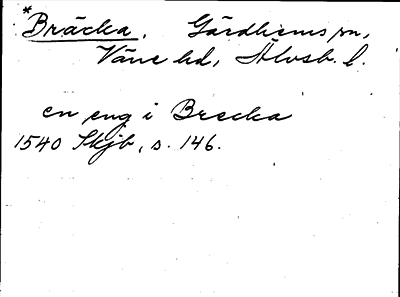 *Bräcka. Gärdhems sn,
Väne hd, Älvsb. l.
en eng i Brecka
1540 Skjb, s. 146.